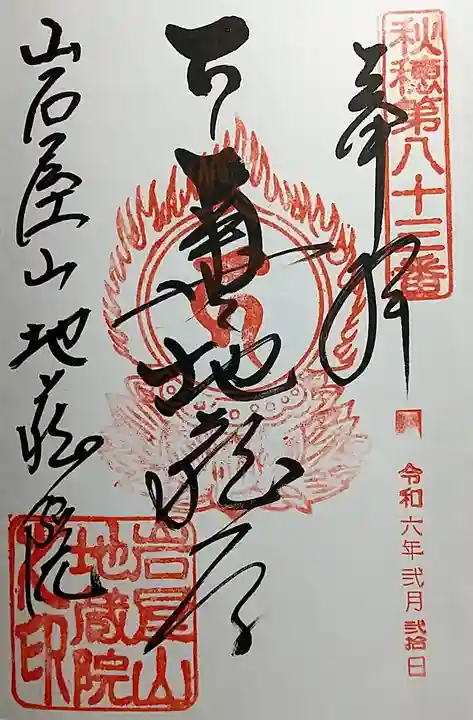 秋穂第八十三番
奉拝
令和六年弐月弐拾日
地蔵尊
岩屋山地蔵院
岩屋山
地蔵院
印